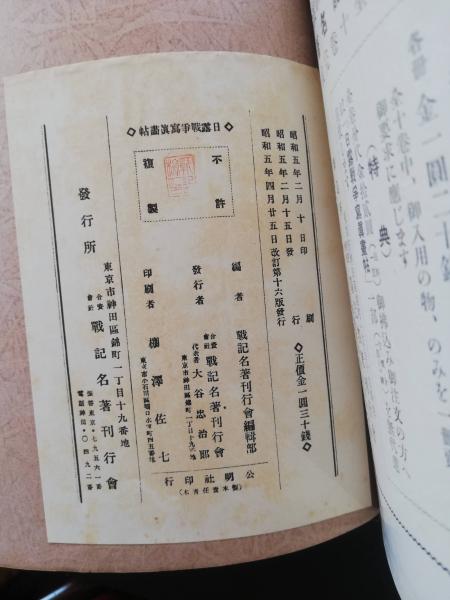 ◇日露戰爭寫眞畫帖◇
不許
複製
昭和五年二月十日印刷
昭和五年二月十五日發行
昭和五年四月廿五日改訂第十六版發行
◇正價金一圓三十錢◇
編者 戰記名著刊行會編輯部
東京市神田區錦町一丁目十九番地
發行者 合資會社 戰記名著刊行會
代表者 大谷忠治郎
印刷者 柳澤佐七
發行所
東京市神田區錦町一丁目十九番地
合資會社 戰記名著刊行會
振替東京・七九五六一番
電話神田・〇四九二番
公明社印行
各冊 金一圓三十錢
全十卷中、御入用の物、のみを
御要求に應じます
特典